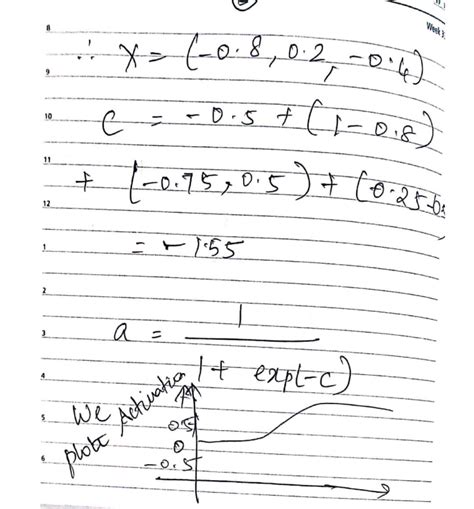 Week 3
8
∴ X = (-0.8, 0.2, -0.4)
9
10
C = -0.5 + (1-0.8)
11
+ (-0.75, 0.5) + (0.25-0.
12
= -1.55
1
2
a = 1
3
1 + exp(-c)
4
We Activation
plot
5
0.5
0
6
-0.5